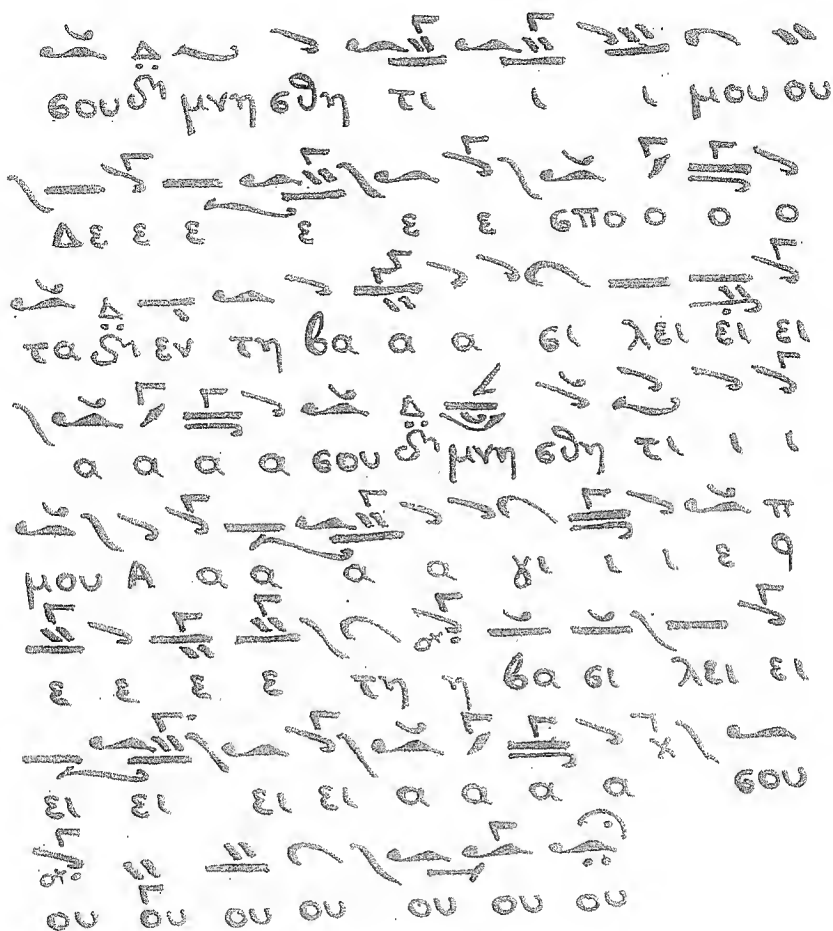 σου δη μνη σθη τι ι ι μου ου
Δε ε ε ε ε ε σπο ο ο ο
τα δη εν τη βα α α σι λει ει ει
α α α α σου δη μνη σθη τι ι ι
μου Α α α α α γι ι ι ε
ε ε ε ε τη η βα σι λει ει
ει ει ει ει α α α α σου
ου ου ου ου ου ου ου